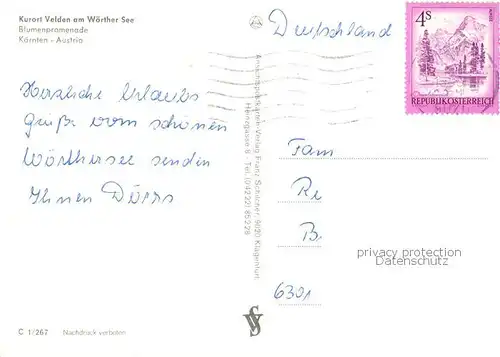 Kurort Velden am Wörther See
Blumenpromenade
Kärnten - Austria
Herzliche Urlaubs
grüße vom schönen
Wörthersee senden
Ihnen
C 1/267 Nachdruck verboten
Ansichtspostkarten-Verlag Franz Schilcher, 9020 Klagenfurt
Tel. (04222) 85 2 28
Deutschland
4 S
REPUBLIK ÖSTERREICH
Fam
Re
B
6301
privacy protection
Datenschutz